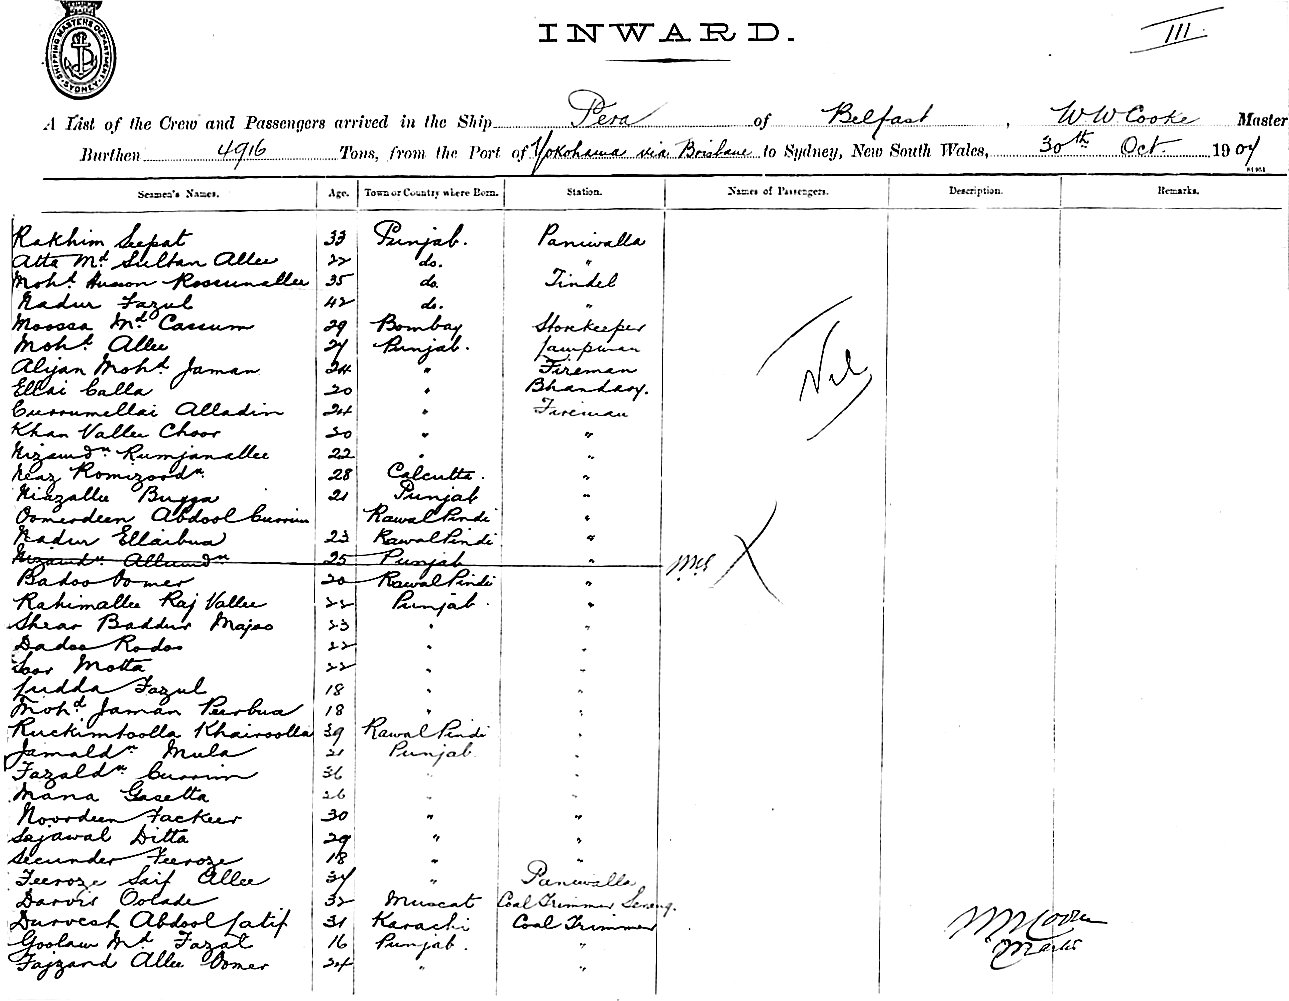 SHIPPING MASTERS DEPARTMENT SYDNEY
INWARD.
III
A List of the Crew and Passengers arrived in the Ship Pera of Belfast, W W Cooke Master
Burthen 4916 Tons, from the Port of Yokohama via Brisbane to Sydney, New South Wales, 30th Oct. 1907
Seamen's Names. Age. Town or Country where Born. Station. Names of Passengers. Description. Remarks.
Rakhim Seepat 33 Punjab. Paniwalla
Atta Md. Sultan Allee 22 do. "
Moht. Husson Rossumallee 35 do. Tindel
Nadur Fazul 42 do. "
Moossa Md. Cassum 29 Bombay Storekeeper
Moht. Allee 27 Punjab. Lampman
Alijan Moht. Jaman 24 " Fireman
Ellai Calla 20 " Bhandary.
Currumellai Alladin 24 " Fireman
Nil
Khan Vallee Choor 30 " "
Nizamdn Rumjanallee 22 " "
Neaz Romizoodn. 28 Calcutta. "
Niazallee Bugga 21 Punjab "
Oomerdeen Abdool Currim Rawal Pindi "
Nadur Ellaibux 23 Rawal Pindi "
Nizamdn Allumdn 25 Punjab
X
Badoo Oomer 20 Rawal Pindi "
Rahimallee Raj Vallee 22 Punjab. "
Shear Baddur Majoo 23 " "
Dadoo Rodoo 22 " "
Soor Motta 22 " "
Ludda Fazul 18 " "
Mohd. Jaman Peerbux 18 " "
Ruckimtoolla Khairoolla 39 Rawal Pindi "
Jamaldn Mula 21 Punjab "
Fazaldn. Currim 36 " "
Mana Gasetta 26 " "
Noordeen Fackeer 30 " "
Sajawal Ditta 29 " "
Secunder Feeroze 18 " "
Feeroze Saif Allee 37 " Paniwalla
Darvis Oolade 32 Muscat Coal Trimmer Serang.
Durvesh Abdool Latif 31 Karachi Coal Trimmer
W W Cooke
Goolam Md. Fazal 16 Punjab. "
Master
Fajzand Allee Oomer 24 " "